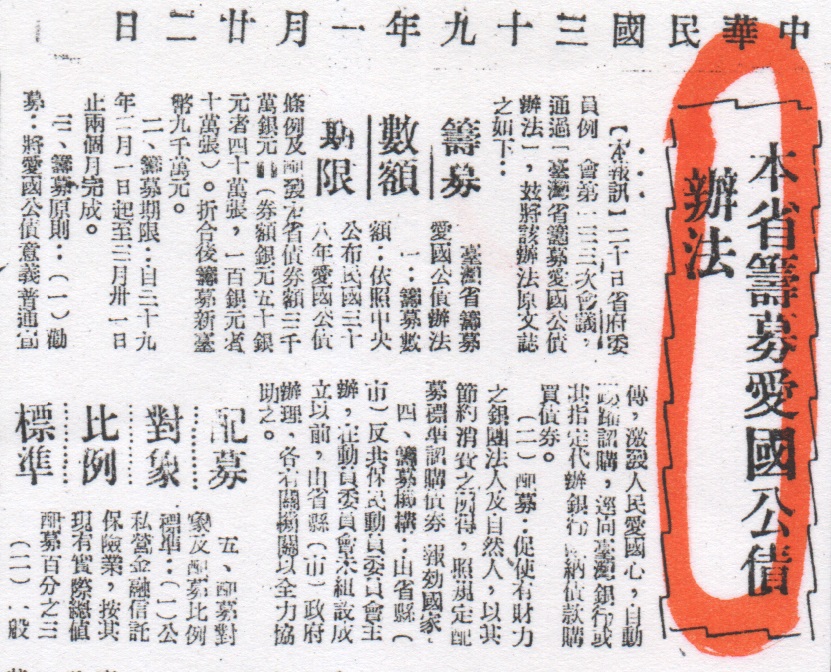 中華民國三十九年一月廿二日
本省籌募愛國公債
辦法
【本報訊】二十日省府委
員例會第一三三次會議，
通過「臺灣省籌募愛國公債
辦法」，茲將該辦法原文誌
之如下：
籌募
數額
期限
臺灣省籌募
愛國公債辦法
一：籌募數
額：依照中央
公布民國三十
八年愛國公債
條例及配發本省債券額三千
萬銀元（券額銀元五十銀
元者四十萬張，一百銀元者
十萬張）。折合後籌募新臺
幣九千萬元。
二、籌募期限：自三十九
年二月一日起至三月卅一日
止兩個月完成。
三、籌募原則：（一）勸
募：將愛國公債意義普通宣
傳，激發人民愛國心，自動
踴躍認購，逕向臺灣銀行或
其指定代辦銀行繳納債款購
買債券。
（二）配募：促使有財力
之銀團法人及自然人，以其
節約消費之所得，照規定配
募標準認購債券 報効國家
四、籌募機構：由省縣（
市）反共保民動員委員會主
辦，在動員委員會未組設成
立以前，由省縣（市）政府
辦理、各有關機關以全力協
助之。
配募
對象
比例
標準
五、配募對
象及配募比例
標準：（一）公
私營金融信託
保險業，按其
現有實際總值
配募百分之三
（二）一般